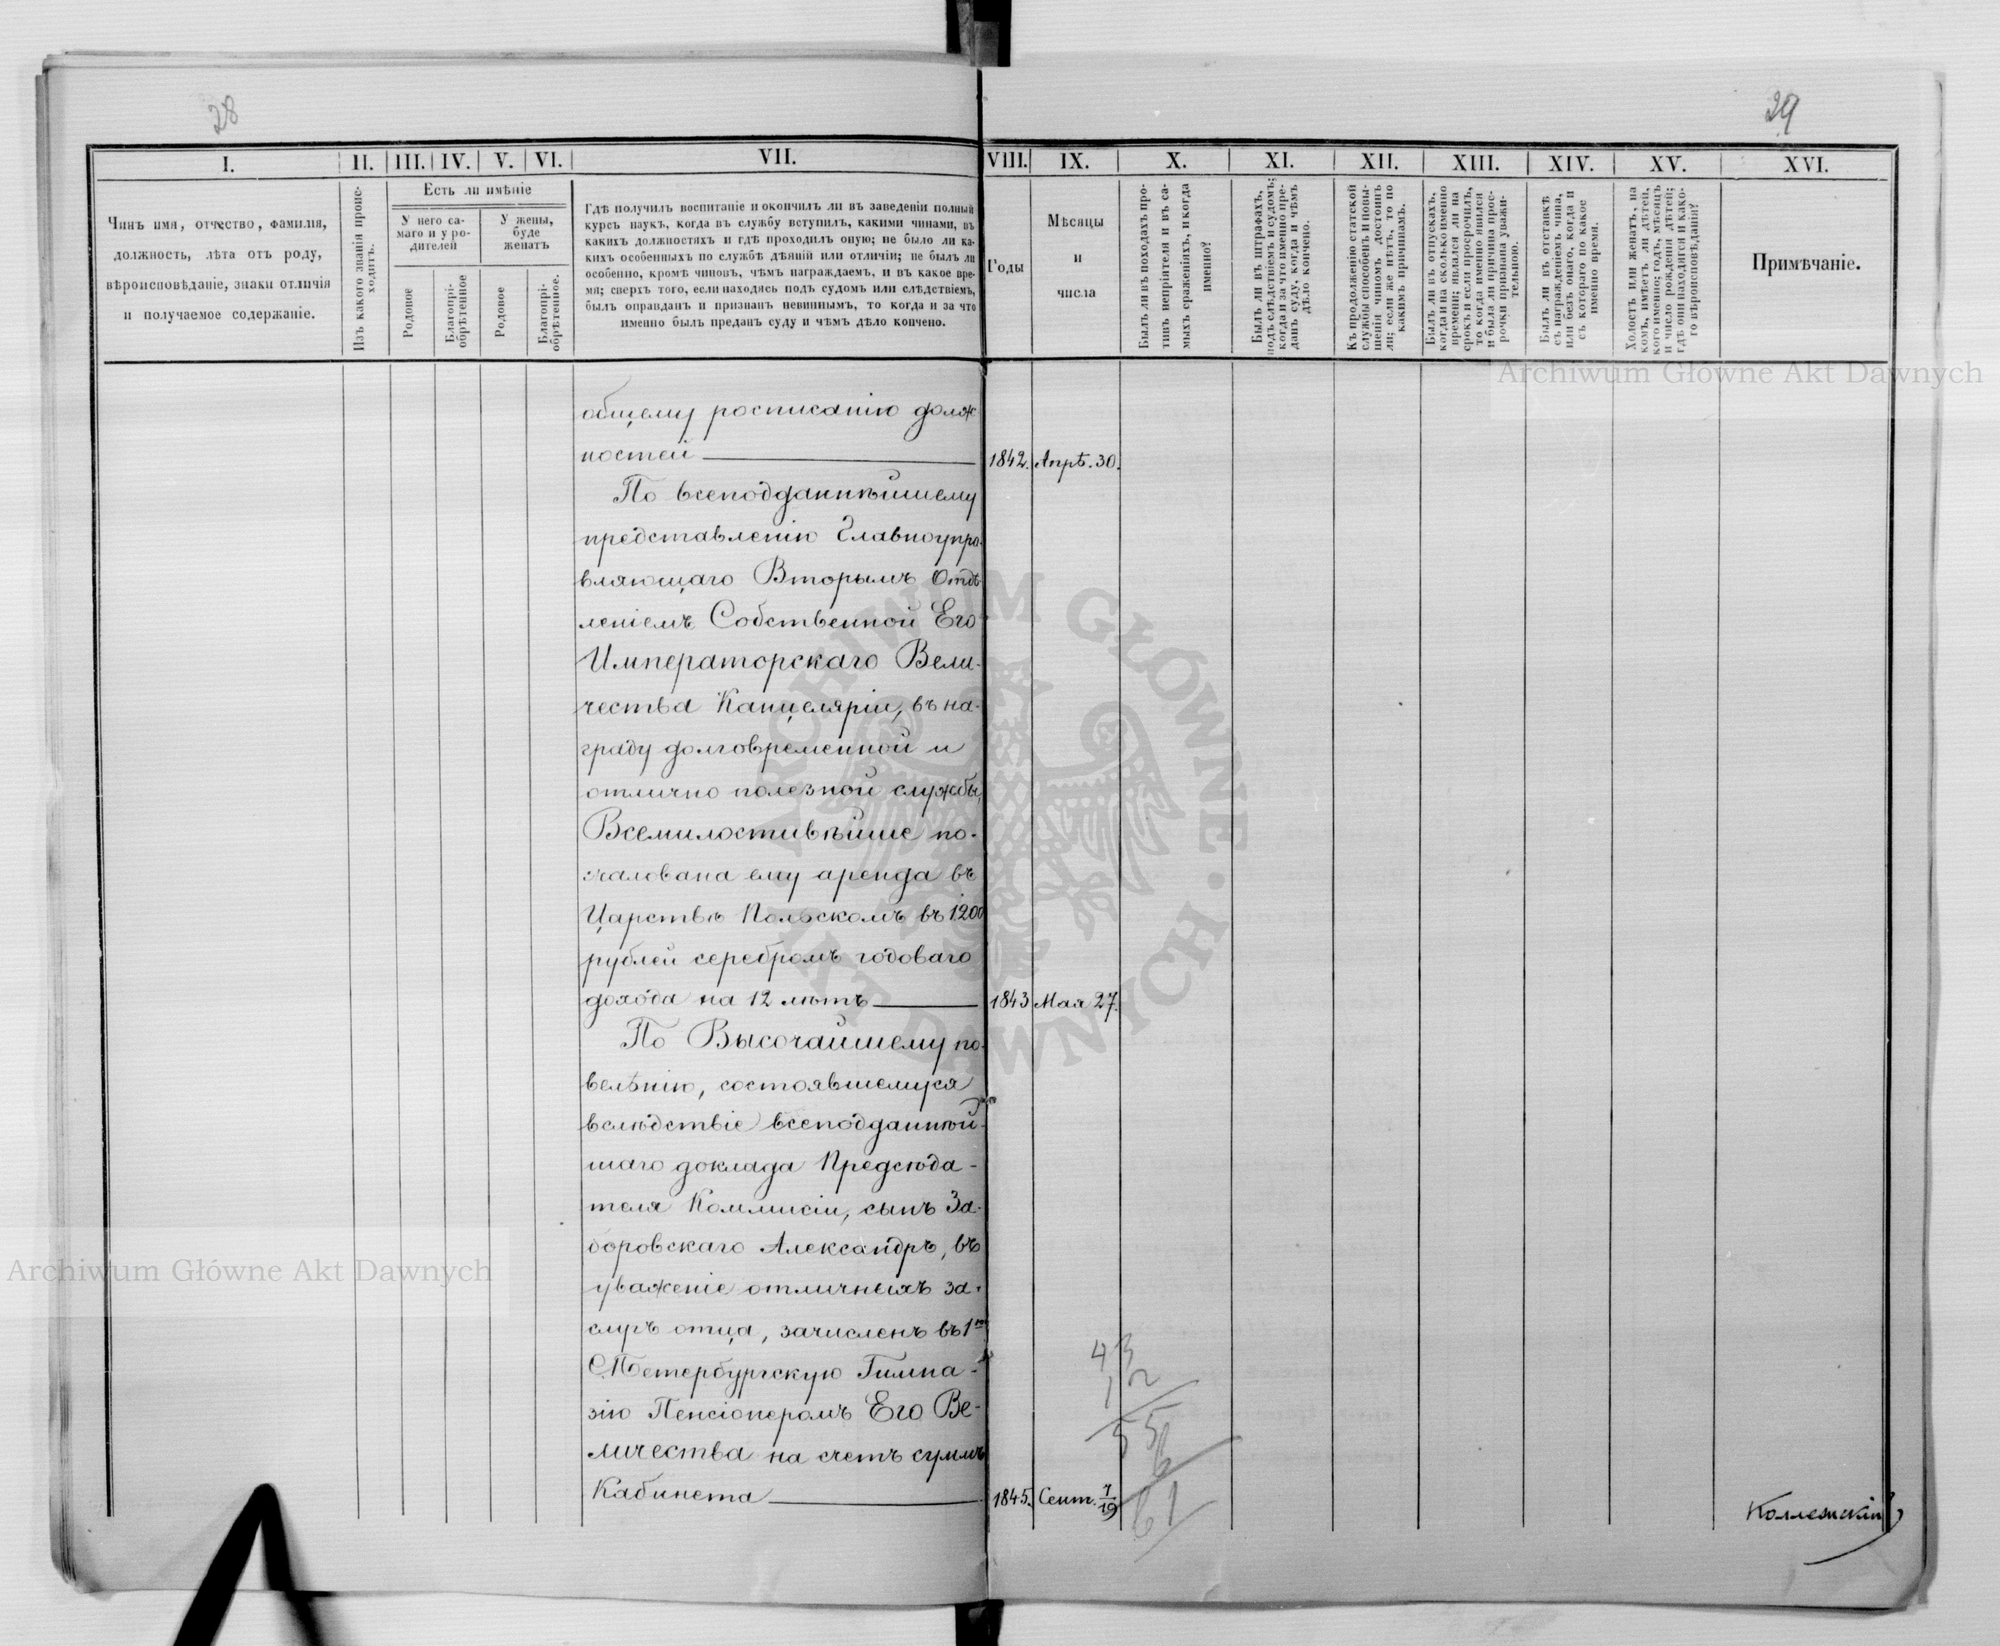 28
29
I.
II.
III.
IV.
V.
VI.
VII.
VIII.
IX.
X.
XI.
XII.
XIII.
XIV.
XV.
XVI.
Чинъ имя, отчество, фамилія,
должность, лѣта отъ роду,
вѣроисповѣданіе, знаки отличія
и получаемое содержаніе.
Изъ какого званія проис-
ходитъ.
Есть ли имѣніе
У него са-
маго и у ро-
дителей
У жены,
буде
женатъ
Родовое
Благопрі-
обрѣтенное
Родовое
Благопрі-
обрѣтенное.
Гдѣ получилъ воспитаніе и окончилъ ли въ заведеніи полный
курсъ наукъ, когда въ службу вступилъ, какими чинами, въ
какихъ должностяхъ и гдѣ проходилъ оную; не было ли ка-
кихъ особенныхъ по службѣ дѣяній или отличій; не былъ ли
особенно, кромѣ чиновъ, чѣмъ награждаемъ, и въ какое вре-
мя; сверхъ того, если находясь подъ судомъ или слѣдствіемъ,
былъ оправданъ и признанъ невиннымъ, то когда и за что
именно былъ преданъ суду и чѣмъ дѣло кончено.
Годы
Мѣсяцы
и
числа
Былъ ли въ походахъ про-
тивъ непріятеля и въ са-
мыхъ сраженіяхъ, и когда
именно?
Былъ ли въ штрафахъ,
подъ слѣдствіемъ и судомъ;
когда и за что именно пре-
данъ суду, когда и чѣмъ
дѣло кончено.
Къ продолженію статской
службы способенъ и повы-
шенія чиномъ достоинъ
ли; если же нѣтъ, то по
какимъ причинамъ.
Былъ ли въ отпускахъ,
когда и на сколько именно
времени; являлся ли на
срокъ и если просрочилъ,
то когда именно явился
и была ли причина прос-
рочки признана уважи-
тельною.
Былъ ли въ отставкѣ
съ награжденіемъ чина,
или безъ онаго, когда и
съ котораго по какое
именно время.
Холостъ или женатъ, на
комъ, имѣетъ ли дѣтей,
кого именно; годъ, мѣсяцъ
и число рожденія дѣтей;
гдѣ они находятся и како-
го вѣроисповѣданія?
Примѣчаніе.
общему росписанію долж
ностей
1842. Апрѣ. 30.
По всеподданнѣйшему
представленію Главноупра-
вляющаго Вторымъ Отдѣ
леніемъ Собственной Его
Императорскаго Вели-
чества Канцеляріи, въ на-
граду долговременной и
отлично полезной службы,
Всемилостивѣйше по-
жалована ему аренда въ
Царствѣ Польскомъ въ 1200
рублей серебромъ годоваго
дохода на 12 лѣтъ
1843 Мая 27.
По Высочайшему по-
велѣнію, состоявшемуся
вслѣдствіе всеподданнѣй-
шаго доклада Предсѣда-
теля Коммисіи, сынъ За-
боровскаго Александръ, въ
уваженіе отличныхъ за-
слугъ отца, зачисленъ въ 1ую
С.Петербургскую Гимна-
зію Пенсіонеромъ Его Ве-
личества на счетъ суммъ
Кабинета
1845. Сент. 7/19
43
12
55
6
61
Коллежскій
Archiwum Główne Akt Dawnych
Archiwum Główne Akt Dawnych
ARCHIWUM GŁÓWNE · AKT DAWNYCH ·